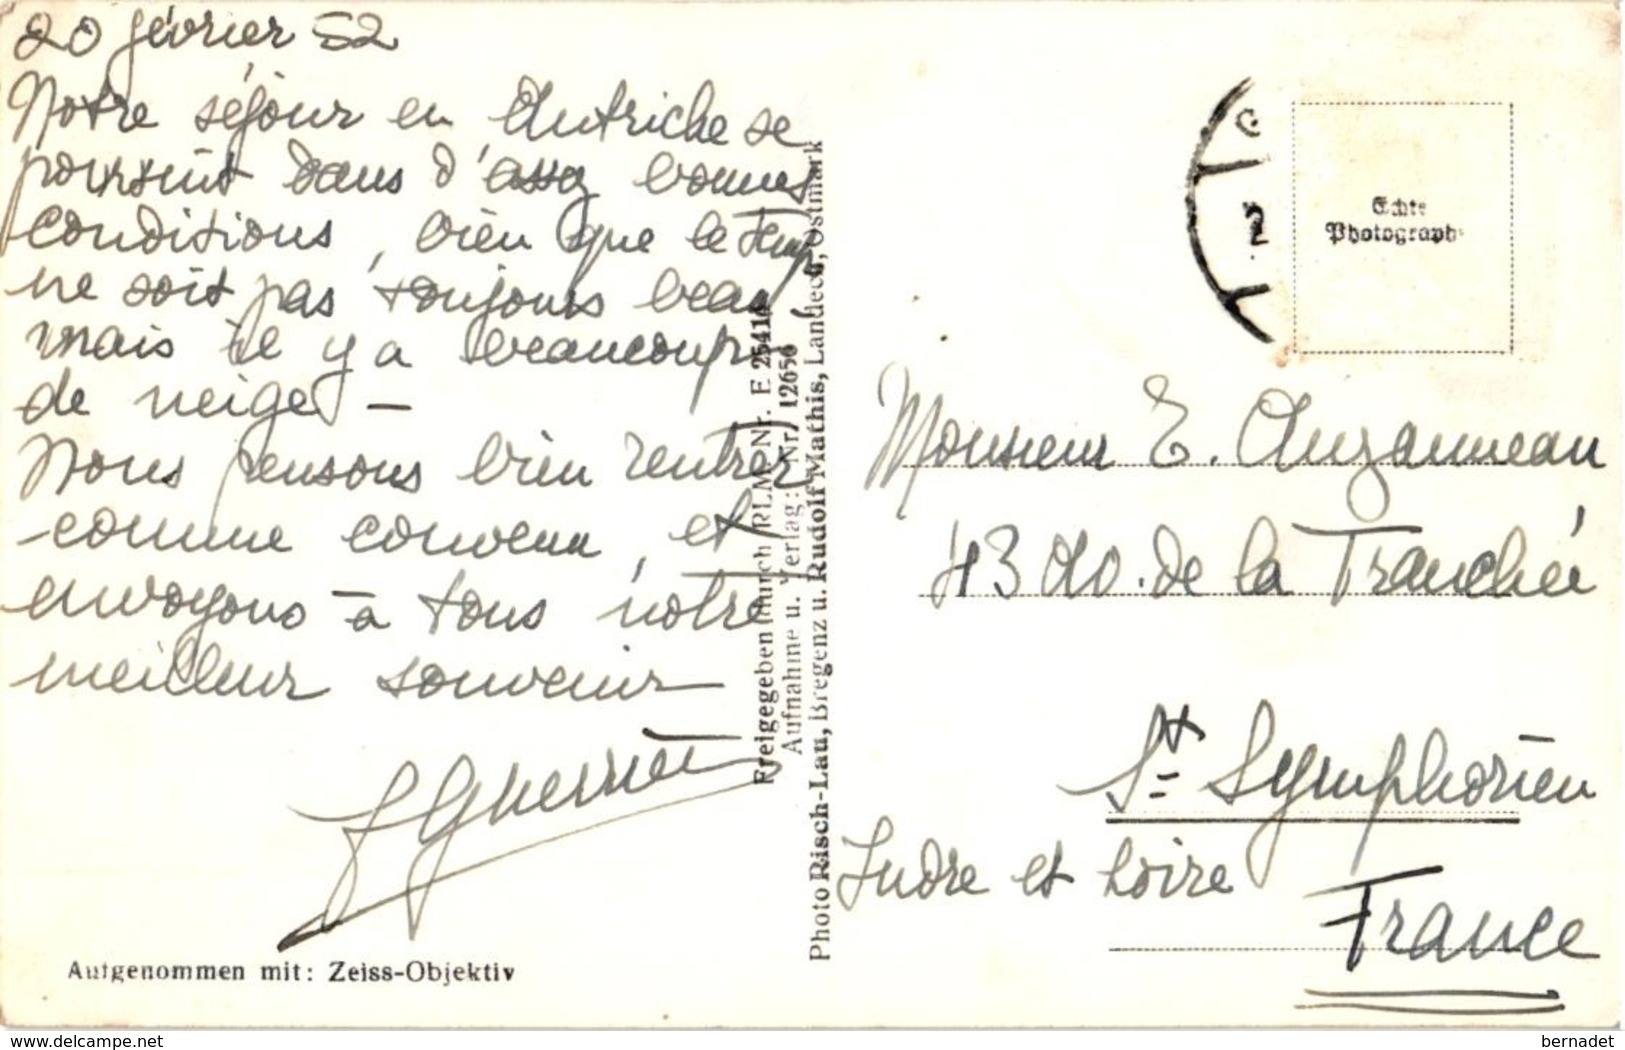 20 février 52
Notre séjour en Autriche se
poursuit dans d'assez bonnes
conditions, bien que le temps
ne soit pas toujours beau
mais il y a beaucoup
de neige –
Nous pensons bien rentrer
comme convenu, et
envoyons à tous notre
meilleur souvenir
Aufgenommen mit: Zeiss-Objektiv
Freigegeben durch RLM Nr. E 25418
Aufnahme u. Verlag: Nr. 12656
Photo Risch-Lau, Bregenz u. Rudolf Mathis, Landeck, Ostmark
2
Echte
Photographie
Monsieur E. Auzanneau
43 de la Tranchée
St Symphorien
Indre et Loire
France
www.delcampe.net
bernadet